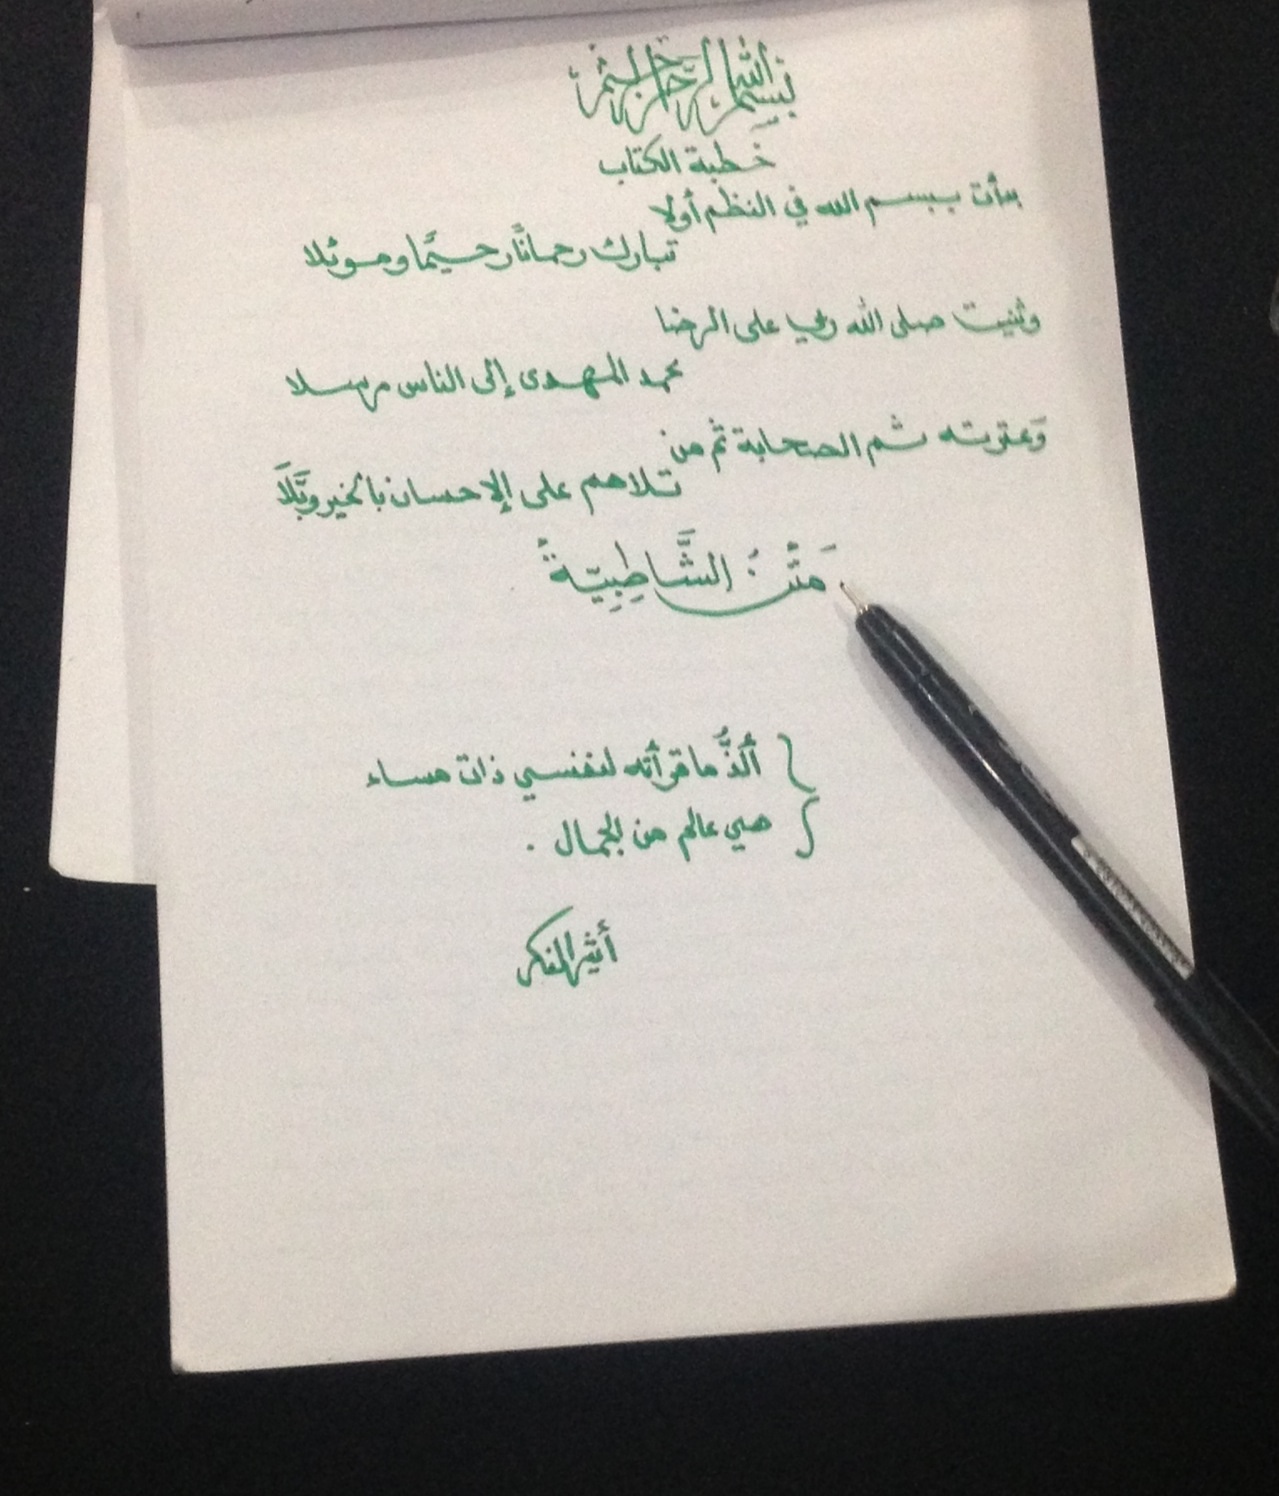 بسم الله الرحمن الرحيم
خطبة الكتاب
بدأت ببسم الله في النظم أولا
تبارك رحمانًا رحيمًا وموئلا
وثنيت صلى الله ربي على الرضا
محمد المهدى إلى الناس مرسلا
وَعترته ثم الصحابة ثم من
تلاهم على الإحسان بالخير وبَّلَا
مَتْنُ الشَّاطِبِيّةْ
ألذُّ ما قرأته لنفسي ذات مساء
هي عالم من الجمال .
أثير المفكر